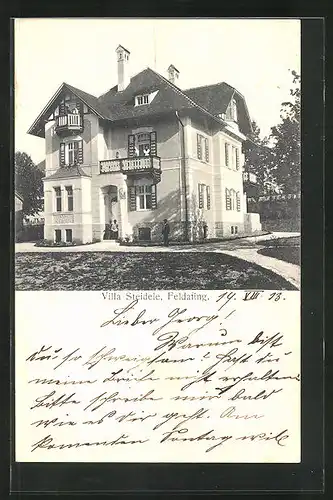 Villa Steidele, Feldafing. 14. VIII. 98.
Lieber Georg!
Warum bist
du so schweigsam? Hast du
meine Briefe nicht erhalten
Bitte schreibe mir bald
wie es dir geht. Am
kommenden Sonntag will